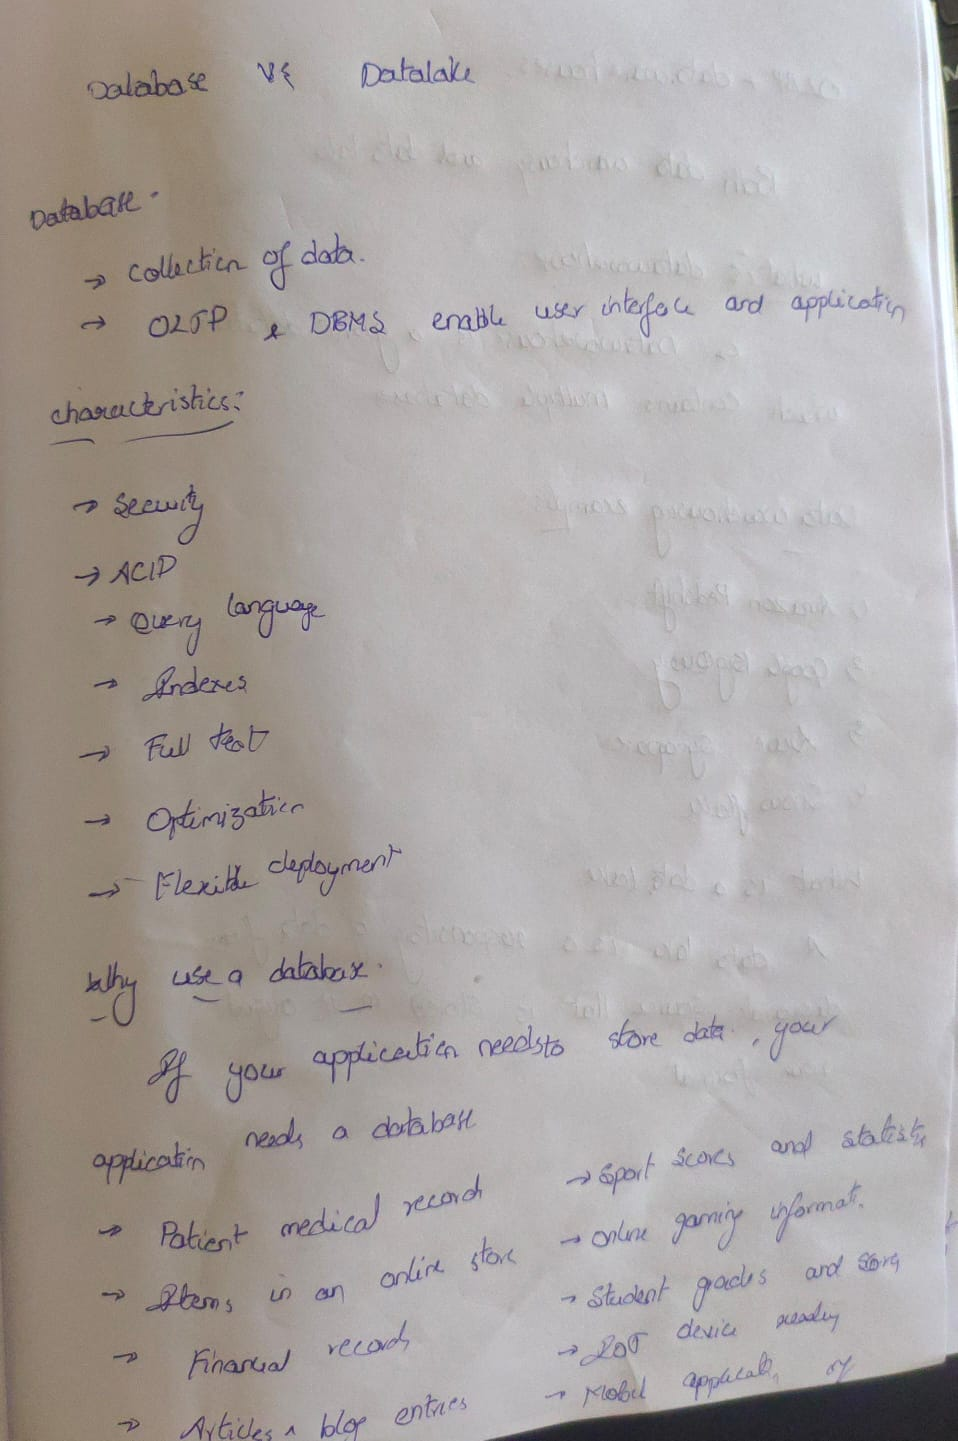 Database VS Datalake
Database.
→ collection of data.
→ OLTP & DBMS enable user interface and application
characteristics:
→ Security
→ ACID
→ Query language
→ Indexes
→ Full text
→ Optimization
→ Flexible deployment
Why use a database.
If your application needs to store data, your
application needs a database
→ Patient medical records
→ Items in an online store
→ Financial records
→ Articles & blog entries
→ Sport scores and statistics
→ online gaming informat.
→ Student grades and
→ IOT device reading
→ Mobil applicatn